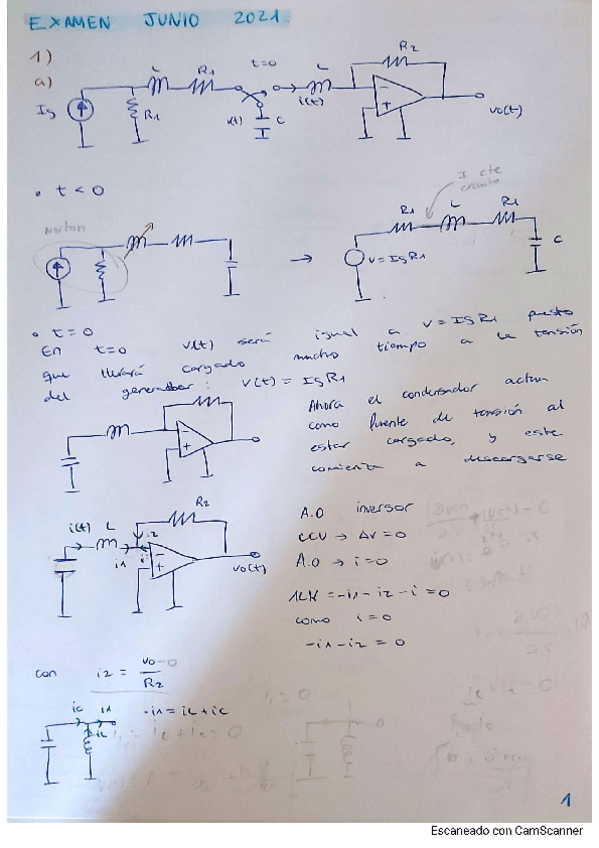 EXAMEN JUNIO 2021
1)
a)
Ig
R1
L
R1
t=0
v(t)
C
L
i(t)
R2
vo(t)
• t < 0
Norton
I cte
circuito
R1
L
R1
V = Ig R1
C
• t = 0
En t=0 v(t) será igual a v = Ig R1 puesto
que llevará cargado mucho tiempo a la tensión
del generador: v(t) = Ig R1
Ahora el condensador actua
como fuente de tensión al
estar cargado, y este
comienza a descargarse
i(t)
L
R2
i2
i1
i
vo(t)
A.O inversor
CCV → Δv = 0
A.O → i = 0
1LK = -i1 - i2 - i = 0
como i = 0
-i1 - i2 = 0
con i2 = vo-0
R2
ic
i1
iL
-i1 = iL + ic
1
Escaneado con CamScanner